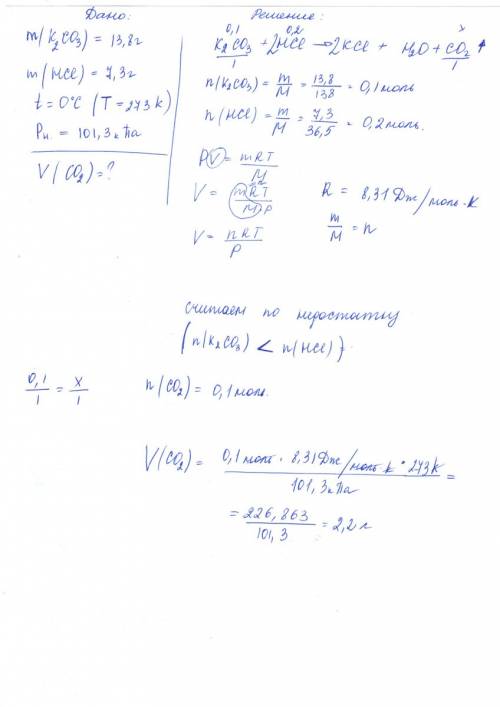 Дано:
m(K2CO3) = 13,8г
m(HCl) = 7,3г
t = 0°C (T = 273k)
Pн. = 101,3кПа
V(CO2) = ?
Решение:
0,1 0,2 x
K2CO3 + 2HCl → 2KCl + H2O + CO2↑
1 1
n(K2CO3) = m/M = 13,8/138 = 0,1моль
n(HCl) = m/M = 7,3/36,5 = 0,2моль.
PV = mRT/M
V = mRT/M·P R = 8,31 Дж/моль·К
V = nRT/P m/M = n
считаем по недостатку
(n(K2CO3) < n(HCl))
0,1/1 = x/1 n(CO2) = 0,1моль.
V(CO2) = 0,1моль · 8,31Дж/моль·k · 273k / 101,3кПа =
= 226,863/101,3 = 2,2л